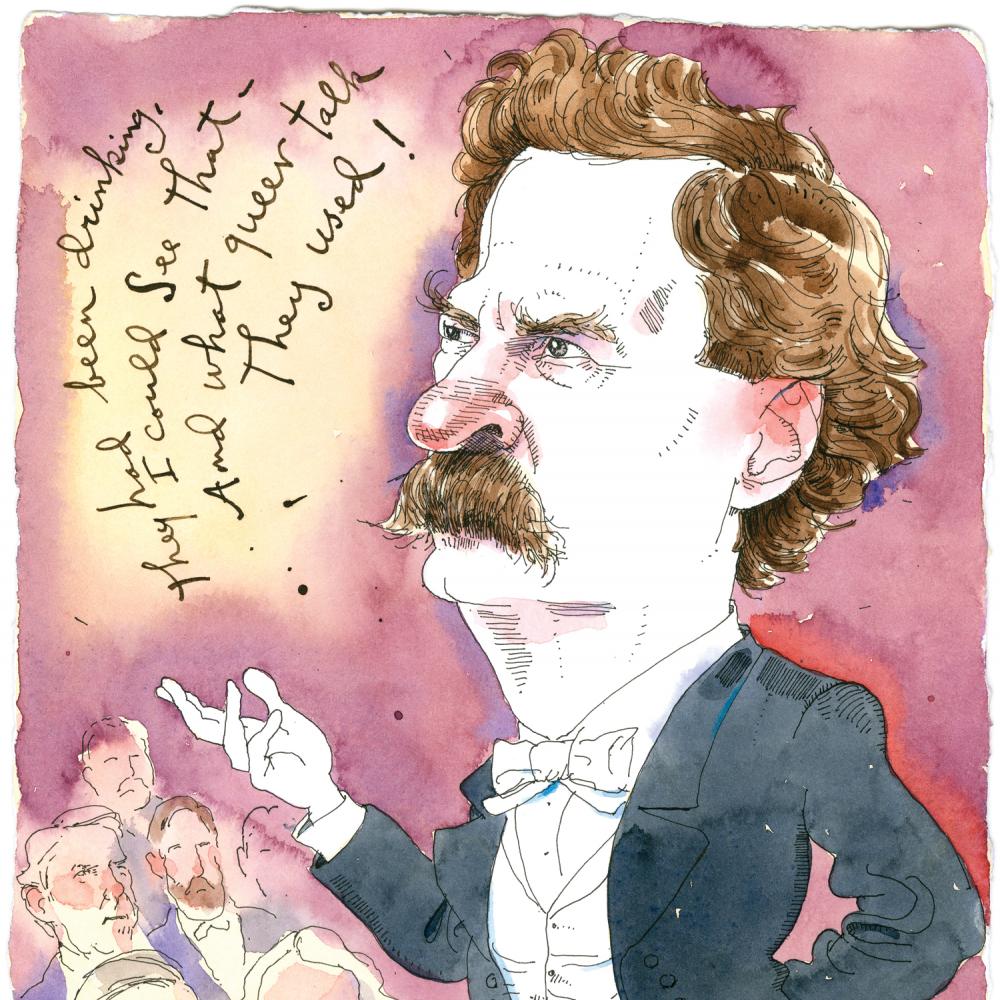 they had been drinking,
I could See that -
And what queer talk
They used!